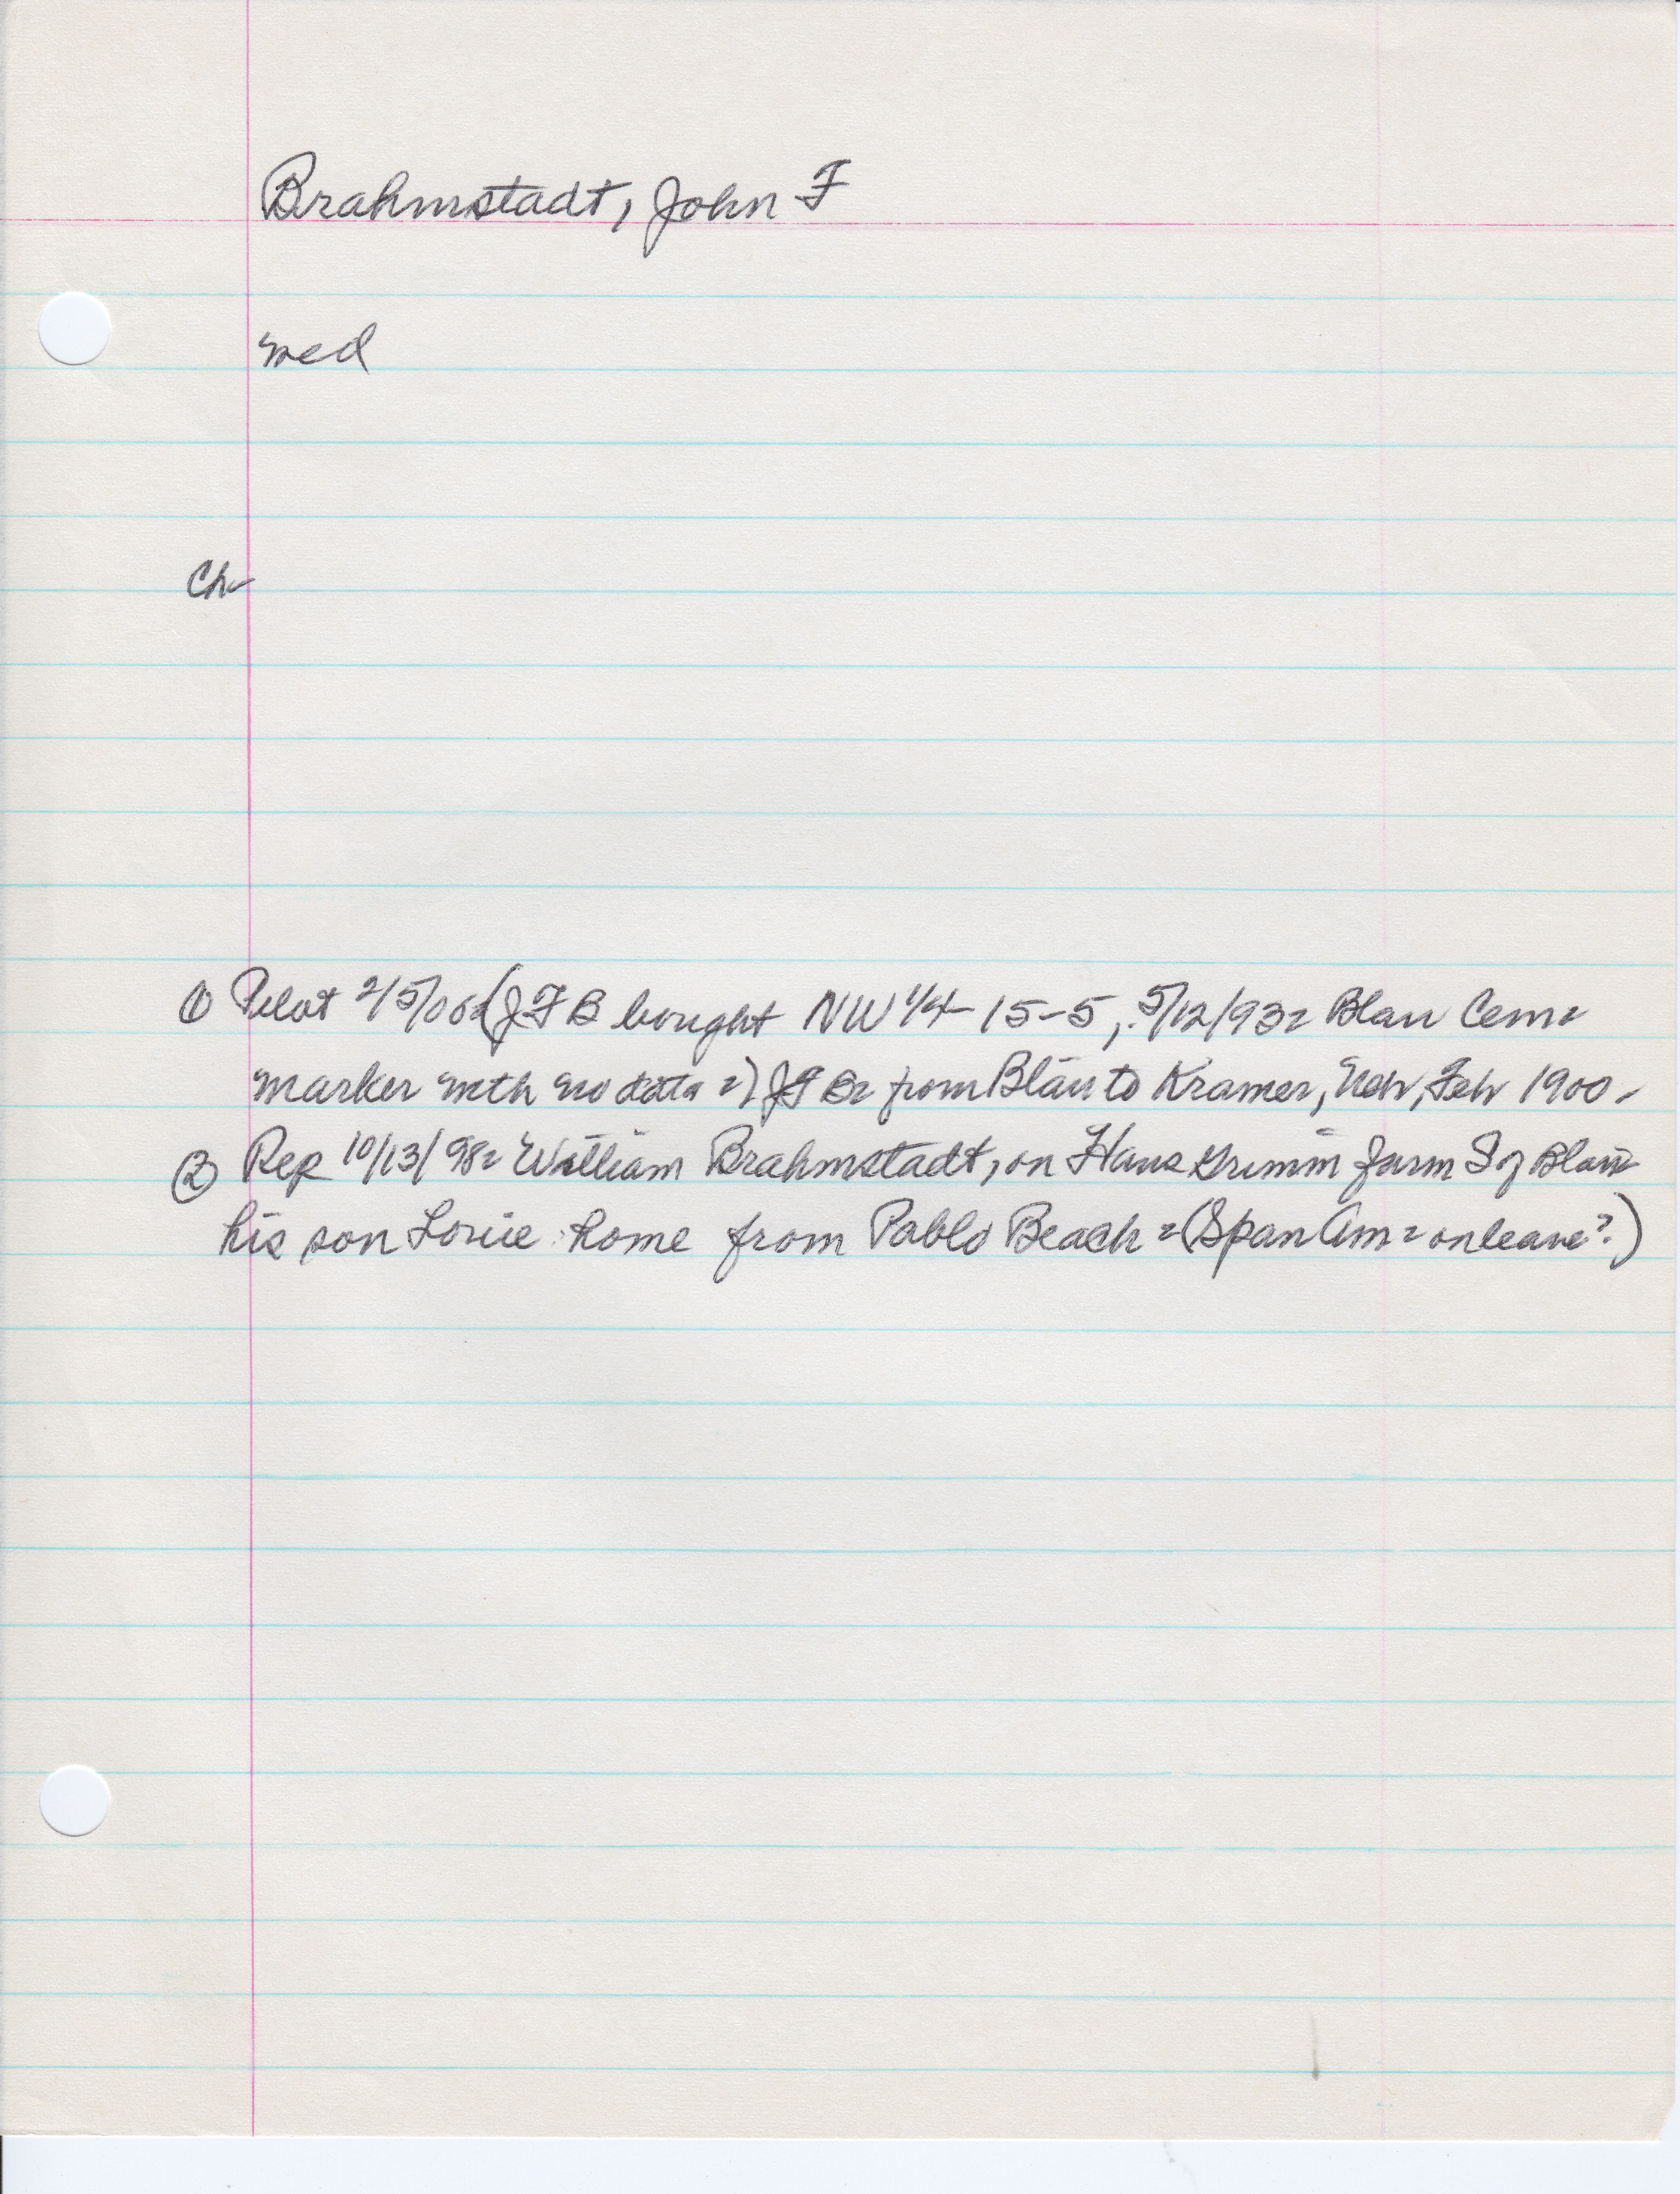 Brahmstadt, John F
med
Ch-
① Pilot 2/5/06 (JFB bought NW 1/4 - 15-5, 5/12/93= Blau Cem=
marker with no data =) JFB= from Blau to Kramer, Neb, Feb 1900 -
② Rep 10/13/98= William Brahmstadt, on Hans Grimm farm S of Blau
his son Louie home from Pablo Beach = (Span Am = on leave?)